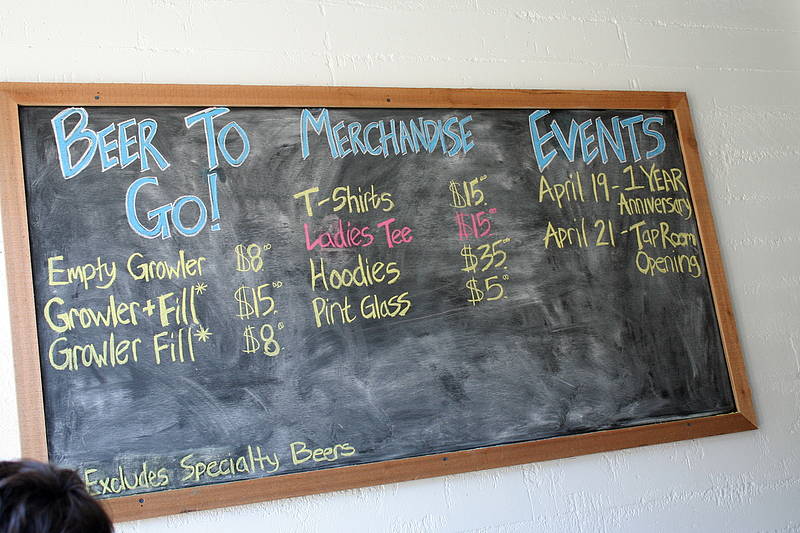 BEER TO
GO!
Empty Growler $8.00
Growler + Fill* $15.00
Growler Fill* $8.00
Excludes Specialty Beers
MERCHANDISE
T-Shirts $15.00
Ladies Tee $15.00
Hoodies $35.00
Pint Glass $5.00
EVENTS
April 19 - 1 YEAR
Anniversary
April 21 - Tap Room
Opening